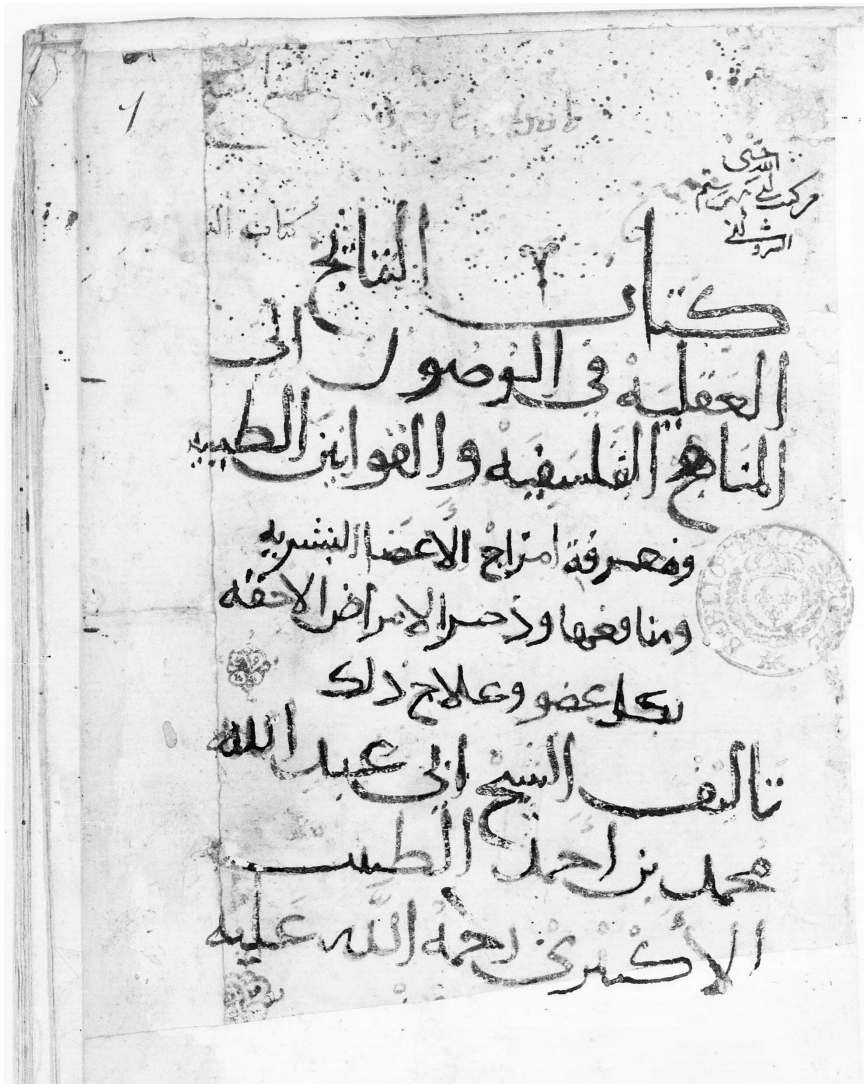 كتاب النتائج
العقلية في الوصول الى
المناهج الفلسفية والقوانين الطبية
ومعرفة امزاج الأعضا البشريه
ومنافعها وذكر الامراض الاحقه
بكل عضو وعلاج ذلك
تاليف الشيخ ابي عبد الله
محمد بن احمد الطبيب
رحمة الله عليه
كتاب